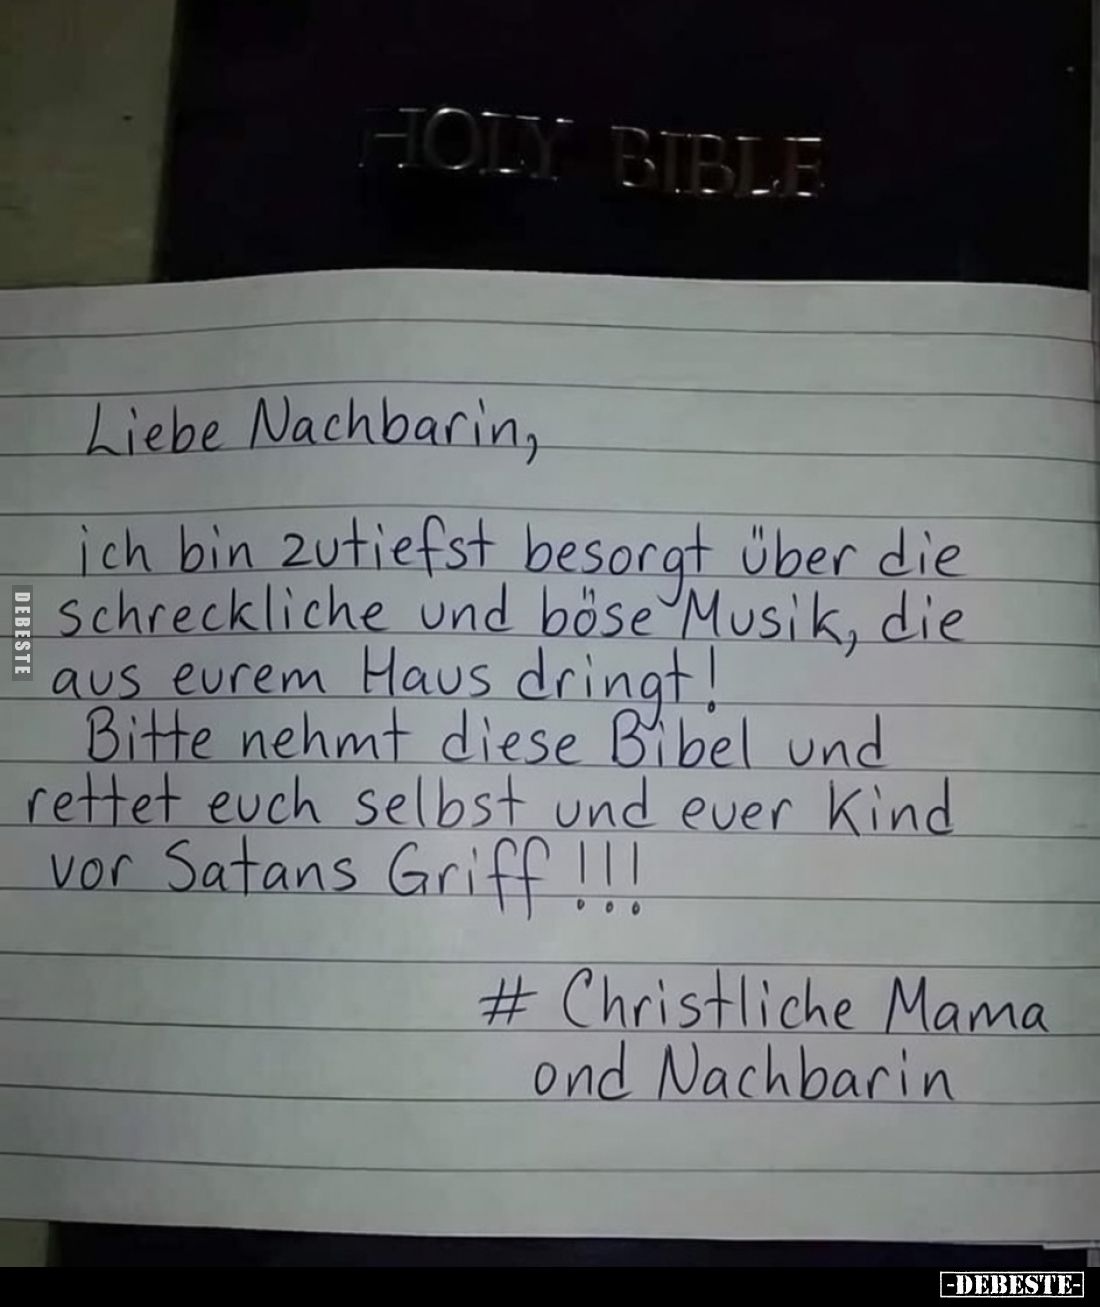 HOLY BIBLE
Liebe Nachbarin,
ich bin zutiefst besorgt über die
schreckliche und böse Musik, die
aus eurem Haus dringt!
Bitte nehmt diese Bibel und
rettet euch selbst und euer Kind
vor Satans Griff!!!
# Christliche Mama
ond Nachbarin
DEBESTE
-DEBESTE-